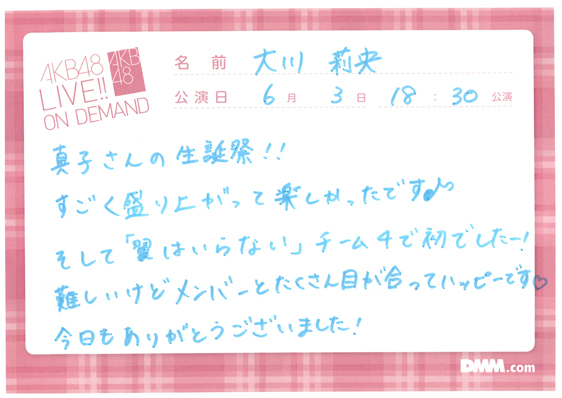 AKB48
LIVE!!
ON DEMAND
AKB
48
名前 大川 莉央
公演日 6月 3日 18:30 公演
真子さんの生誕祭!!
すごく盛り上がって楽しかったです♪
そして「翼はいらない」チーム4で初でしたー!
難しいけどメンバーとたくさん目が合ってハッピーです♡
今日もありがとうございました!
DMM.com